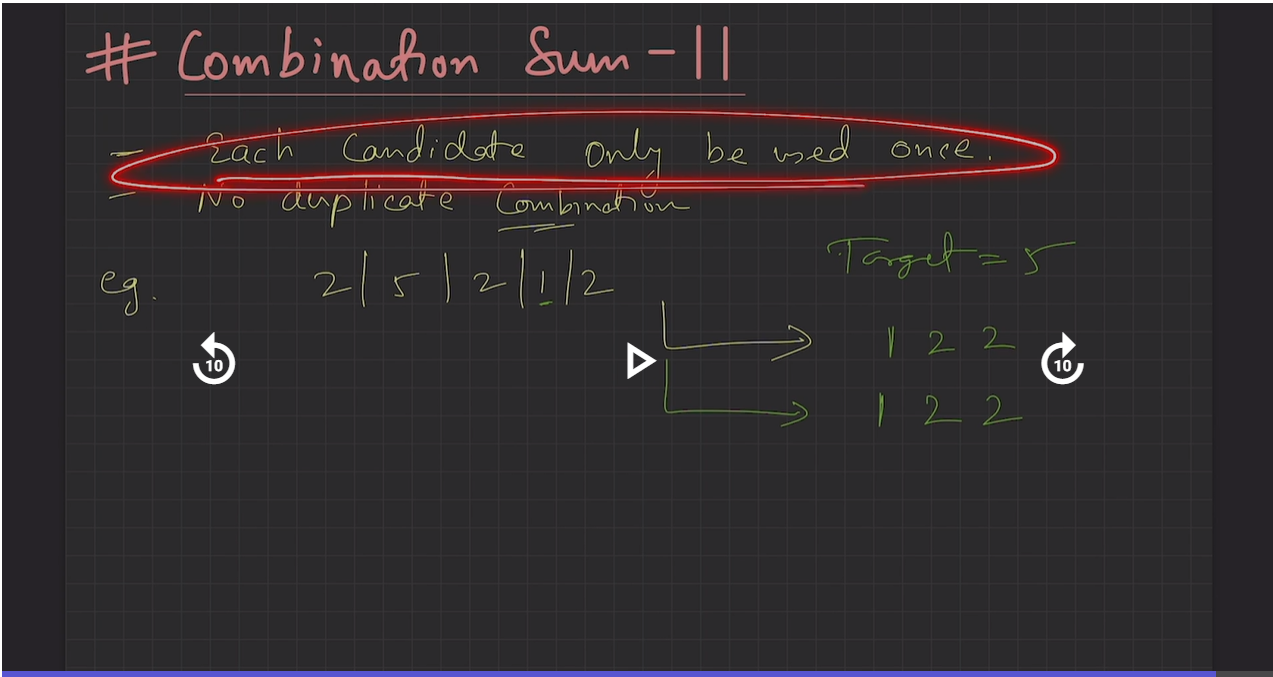 # Combination Sum - II
- Each Candidate only be used once.
- No duplicate Combination
eg. 2 | 5 | 2 | 1 | 2
Target = 5
1 2 2
1 2 2
10
10